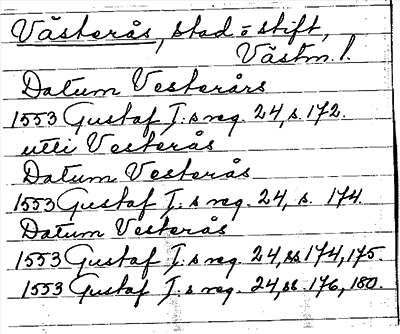 Västerås, stad o stift,
Västm. l.
Datum Vesterårs
1553 Gustaf I:s reg. 24, s. 172.
utti Vesterås
Datum Vesterås
1553 Gustaf I:s reg. 24, s. 174
Datum Vesterås
1553 Gustaf I:s reg. 24, ss. 174, 175.
1553 Gustaf I:s reg. 24, ss. 176, 180.